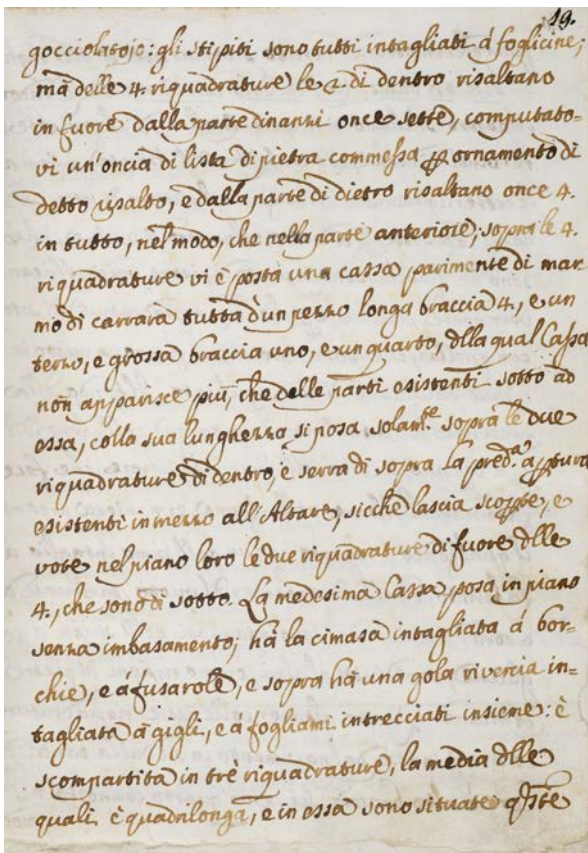 19.
gocciolatojo: gli stipiti sono tutti intagliati á foglicine;
mà delle 4. riquadrature le 2. di dentro risaltano
in fuore dalla parte dinanzi once sette, computato=
vi un'oncia di lista di pietra commessa ꝑ ornamento di
detto risalto, e dalla parte di dietro risaltano once 4.
in tutto, nel modo, che nella parte anteriore; sopra le 4.
riquadrature vi è posta una cassa parimente di mar
mo di carrara tutta d'un pezzo longa braccia 4, e un
terzo, e grossa braccia uno, e un quarto, dlla qual Cassa
non apparisce più, che delle parti esistenti sotto ad
essa, colla sua lunghezza si posa, solam.te sopra le due
riquadrature di dentro, e serra di sopra la pred.a aꝑtura
esistenti in mezzo all'Altare, sicche lascia scoꝑte, e
vote nel piano loro le due riquadrature di fuore dlle
4., che sono di sotto. La medesima Cassa posa in piano
senza imbasamento; hà la cimasa intagliata á bor=
chie, e á fusarole, e sopra hà una gola rivercia in=
tagliata á gigli, e á fogliami intrecciati insieme: è
scompartita in trè riquadrature, la media dlle
quali è quadrilonga, e in essa sono situate qste